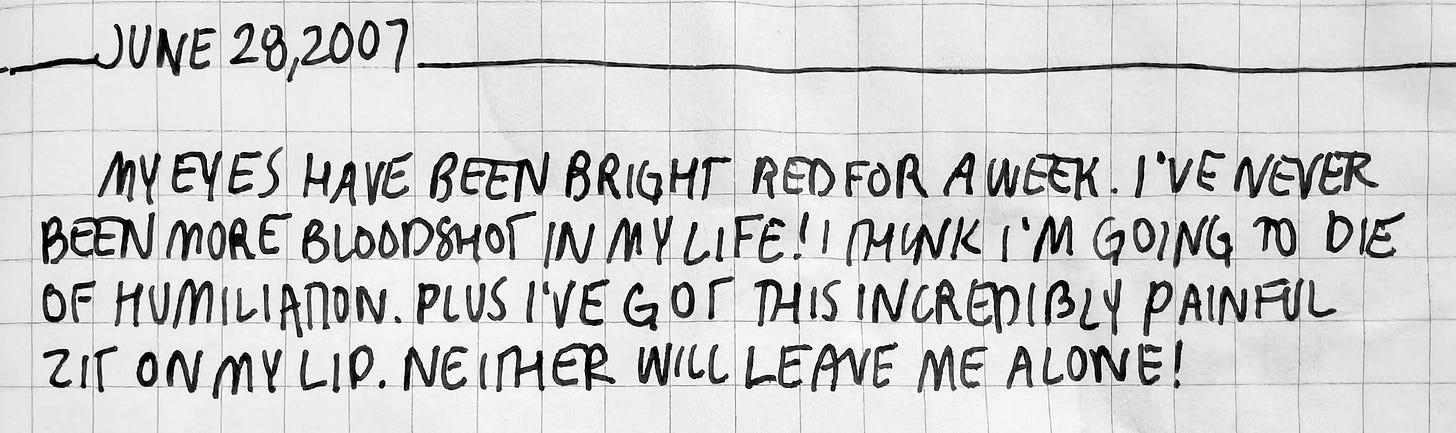 JUNE 28,2007
MY EYES HAVE BEEN BRIGHT RED FOR A WEEK. I'VE NEVER
BEEN MORE BLOODSHOT IN MY LIFE! I THINK I'M GOING TO DIE
OF HUMILIATION. PLUS I'VE GOT THIS INCREDIBLY PAINFUL
ZIT ON MY LIP. NEITHER WILL LEAVE ME ALONE!